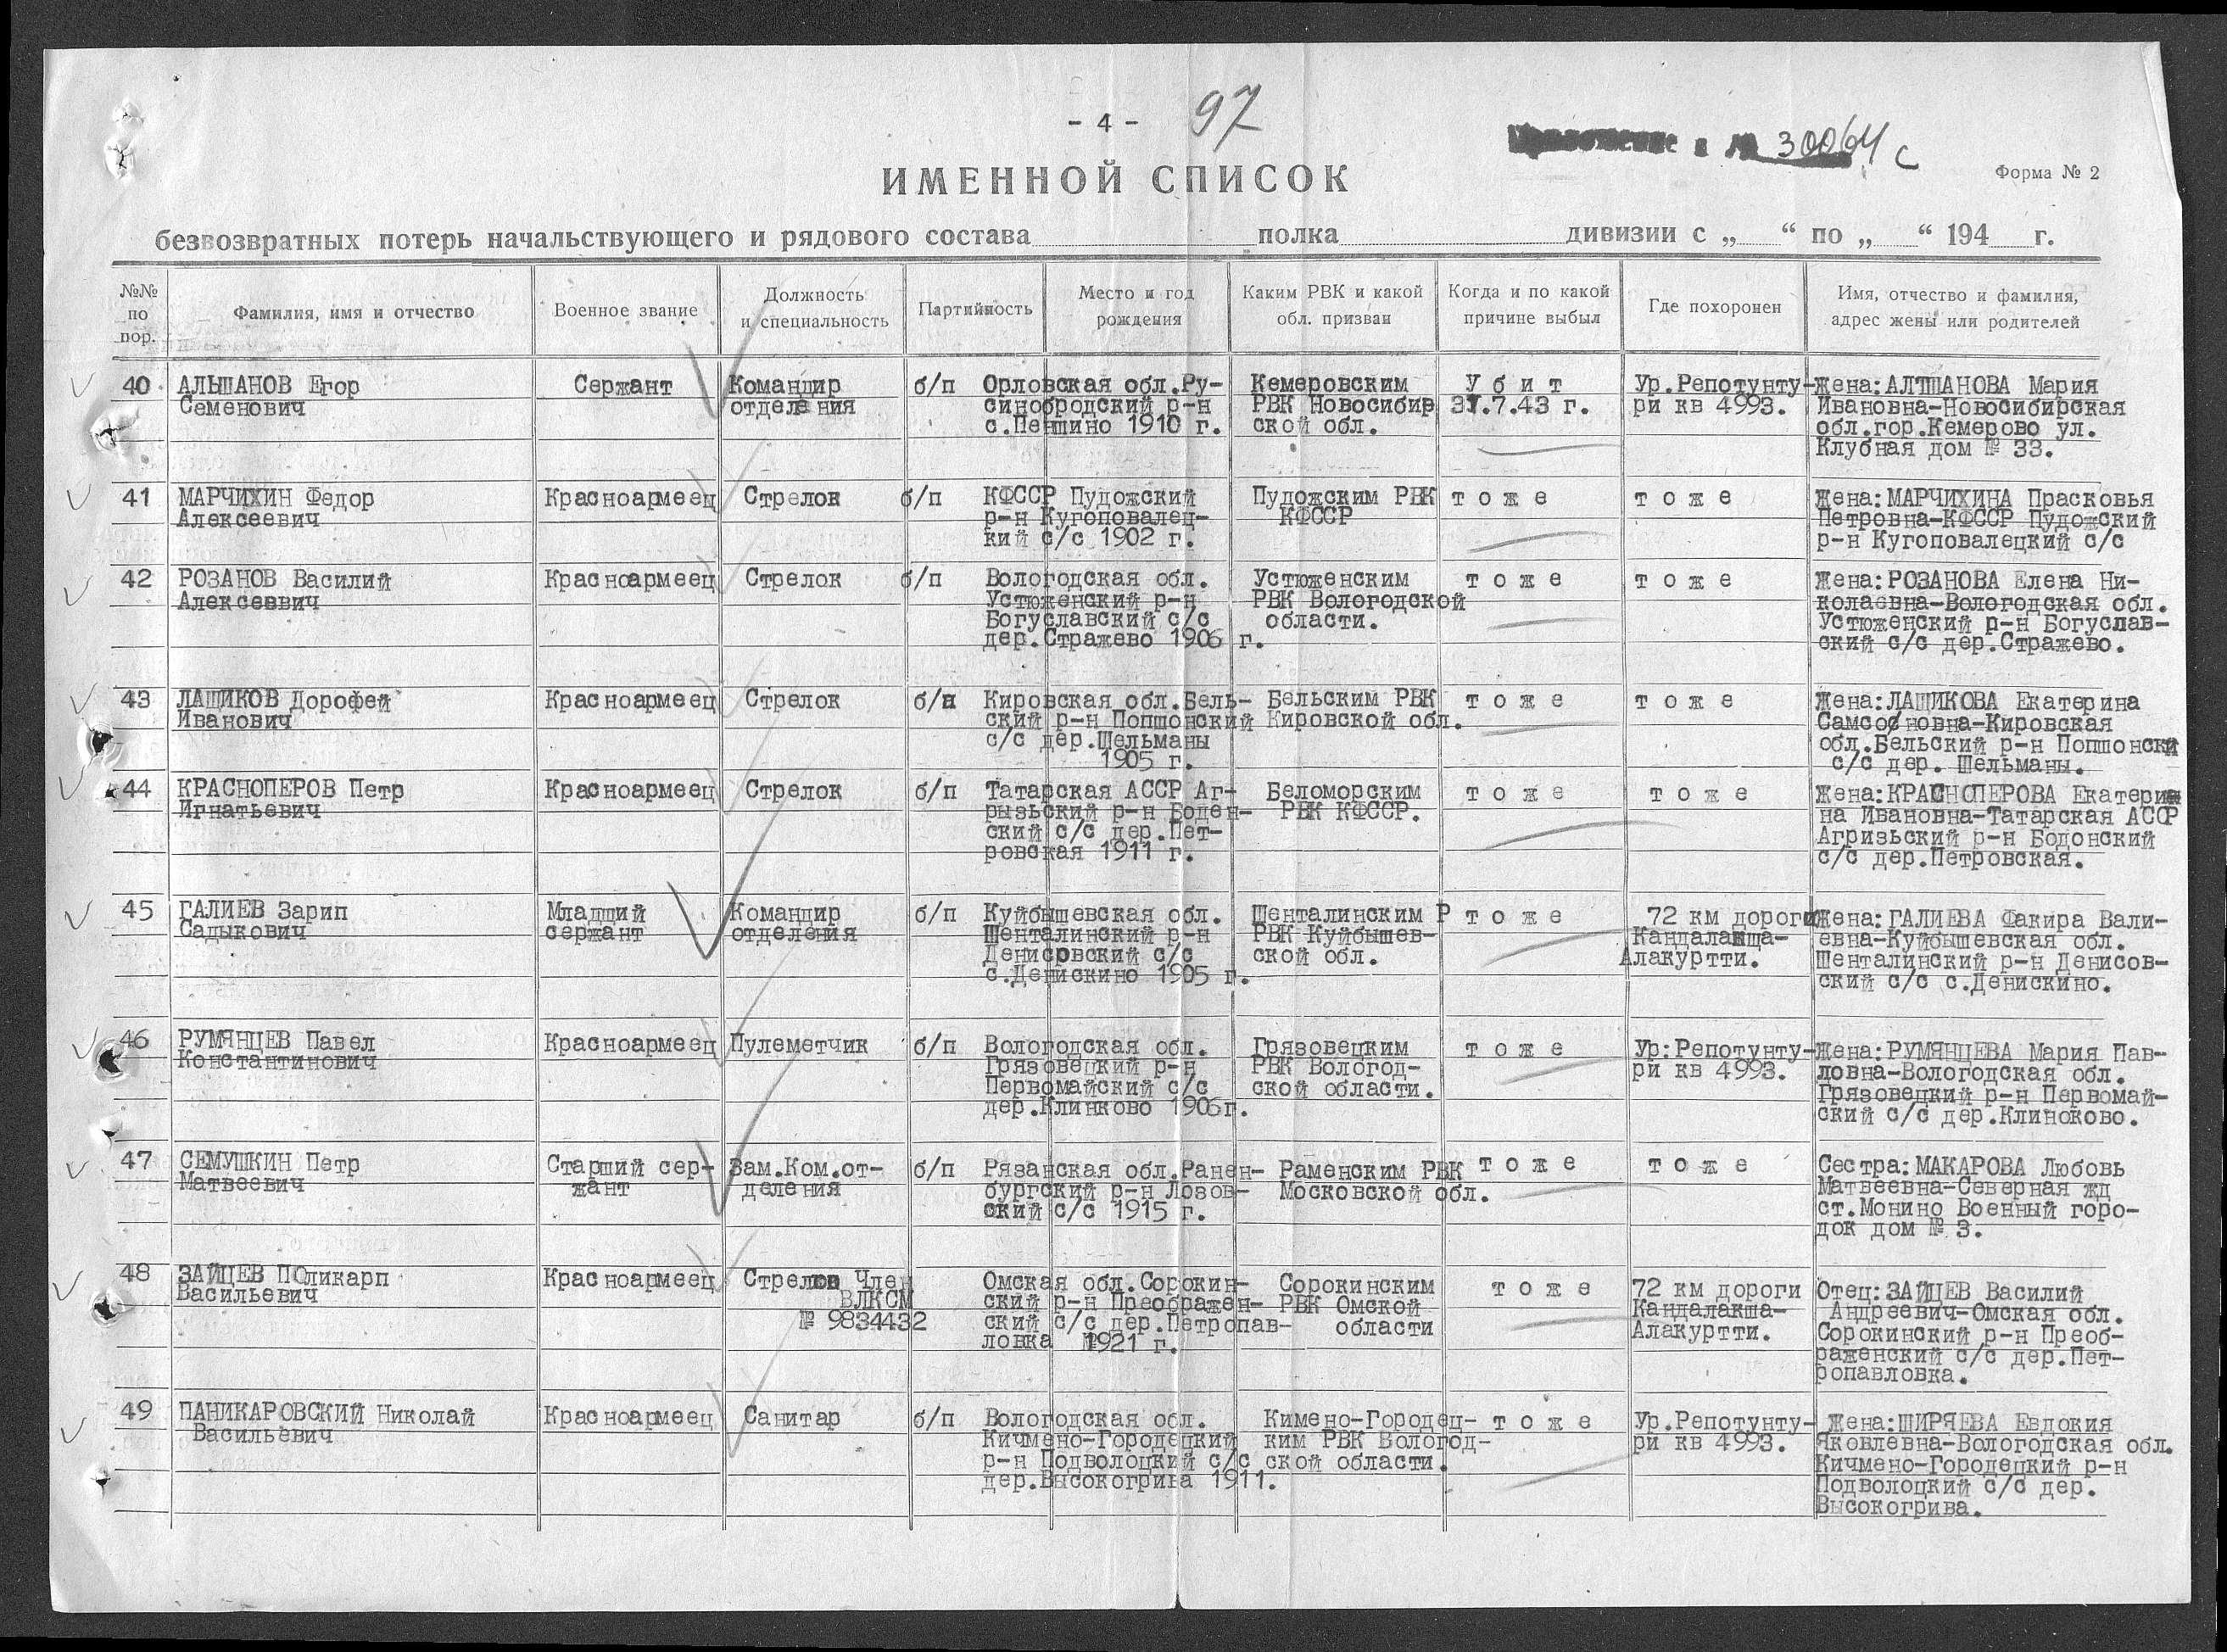 - 4 - 97
Приложение к № 30064 с
ИМЕННОЙ СПИСОК
Форма № 2
безвозвратных потерь начальствующего и рядового состава полка дивизии с „ “ по „ “ 194 г.
№№ по пор.
Фамилия, имя и отчество
Военное звание
Должность и специальность
Партийность
Место и год рождения
Каким РВК и какой обл. призван
Когда и по какой причине выбыл
Где похоронен
Имя, отчество и фамилия, адрес жены или родителей
40 АЛЬШАНОВ Егор Сержант Командир б/п Орловская обл.Ру- Кемеровским У б и т Ур.Репотунту- Жена:АЛТШАНОВА Мария
Семенович отделения синобродский р-н РВК Новосибир 31.7.43 г. ри кв 4993. Ивановна-Новосибирская
с.Пеншино 1910 г. ской обл. обл.гор.Кемерово ул.
Клубная дом № 33.
41 МАРЧИХИН Федор Красноармеец Стрелок б/п КФССР Пудожский Пудожским РВК т о ж е т о ж е Жена:МАРЧИХИНА Прасковья
Алексеевич р-н Кугоповалец- КФССР Петровна-КФССР Пудожский
кий с/с 1902 г. р-н Кугоповалецкий с/с
42 РОЗАНОВ Василий Красноармеец Стрелок б/п Вологодская обл. Устюженским т о ж е т о ж е Жена:РОЗАНОВА Елена Ни-
Алексеввич Устюженский р-н РВК Вологодской колаевна-Вологодская обл.
Богуславский с/с области. Устюженский р-н Богуслав-
дер.Стражево 1906 г. ский с/с дер.Стражево.
43 ЛАЩИКОВ Дорофей Красноармеец Стрелок б/п Кировская обл.Бель- Бельским РВК т о ж е т о ж е Жена:ЛАЩИКОВА Екатерина
Иванович ский р-н Попшонский Кировской обл. Самсоновна-Кировская
с/с дер.Шельманы обл.Бельский р-н Попшонски
1905 г. с/с дер. Шельманы.
44 КРАСНОПЕРОВ Петр Красноармеец Стрелок б/п Татарская АССР Аг- Беломорским т о ж е т о ж е Жена:КРАСНОПЕРОВА Екатери
Игнатьевич рызьский р-н Боден- РВК КФССР. на Ивановна-Татарская АССР
ский с/с дер.Пет- Агризьский р-н Бодонский
ровская 1911 г. с/с дер.Петровская.
45 ГАЛИЕВ Зарип Младший Командир б/п Куйбышевская обл. Шенталинским Р т о ж е 72 км дороги Жена: ГАЛИЕВА Факира Вали-
Садыкович сержант отделения Шенталинский р-н РВК Куйбышев- Кандалакша- евна-Куйбышевская обл.
Денисовский с/с ской обл. Алакуртти. Шенталинский р-н Денисов-
с.Денискино 1905 г. ский с/с с.Денискино.
46 РУМЯНЦЕВ Павел Красноармеец Пулеметчик б/п Вологодская обл. Грязовецким т о ж е Ур:Репотунту- Жена:РУМЯНЦЕВА Мария Пав-
Константинович Грязовецкий р-н РВК Вологод- ри кв 4993. ловна-Вологодская обл.
Первомайский с/с ской области. Грязовецкий р-н Первомай-
дер.Клинково 1906г. ский с/с дер.Клиноково.
47 СЕМУШКИН Петр Старший сер- Зам.Ком.от- б/п Рязанская обл.Ранен- Раменским РВК т о ж е т о ж е Сестра:МАКАРОВА Любовь
Матвеевич жант деления бургский р-н Лозов- Московской обл. Матвеевна-Северная жд
ский с/с 1915 г. ст.Монино Военный горо-
док дом № 3.
48 ЗАЙЦЕВ ПОликарп Красноармеец Стрелок Член Омская обл.Сорокин- Сорокинским т о ж е 72 км дороги Отец:ЗАЙЦЕВ Василий
Васильевич ВЛКСМ ский р-н Преображен- РВК Омской Кандалакша- Андреевич-Омская обл.
№ 9834432 ский с/с дер.Петропав- области Алакуртти. Сорокинский р-н Преоб-
ловка 1921 г. раженский с/с дер.Пет-
ропавловка.
49 ПАНИКАРОВСКИЙ Николай Красноармеец Санитар б/п Вологодская обл. Кимено-Городец- т о ж е Ур.Репотунту- Жена:ШИРЯЕВА Евдокия
Васильевич Кичмено-Городецкий ким РВК Вологод- ри кв 4993. Яковлевна-Вологодская обл.
р-н Подволоцкий с/с ской области. Кичмено-Городецкий р-н
дер.Высокогрива 1911. Подволоцкий с/с дер.
Высокогрива.